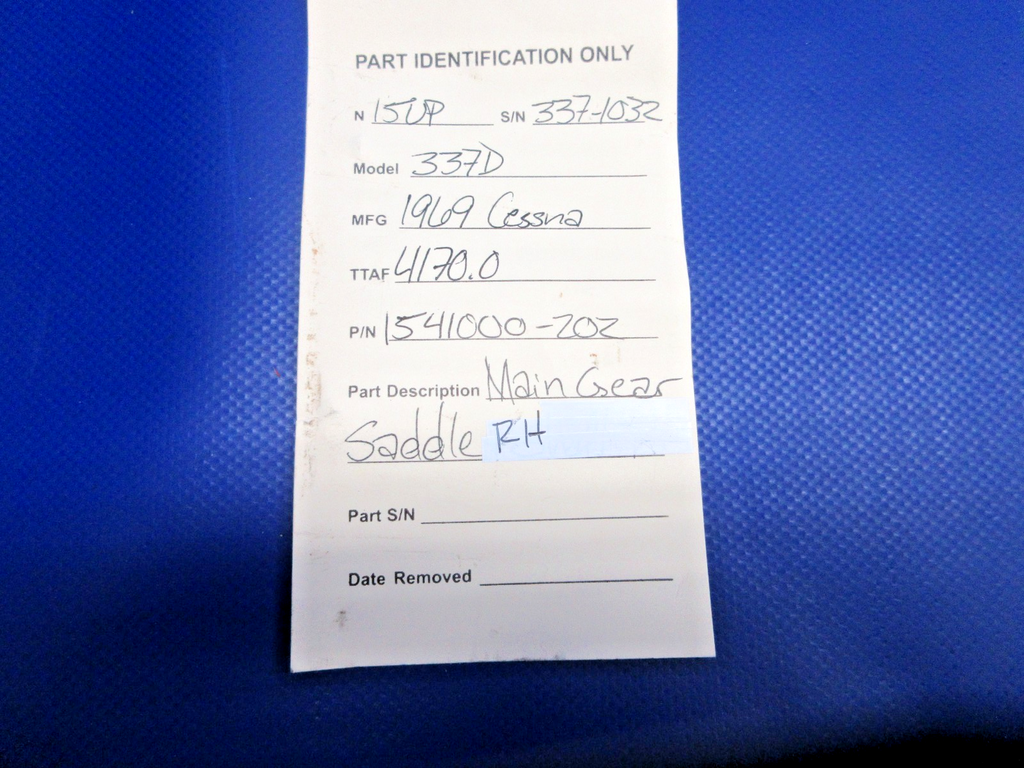 PART IDENTIFICATION ONLY
N 15UP S/N 337-1032
Model 337D
MFG 1969 Cessna
TTAF 4170.0
P/N 1541000-202
Part Description Main Gear
Saddle RH
Part S/N
Date Removed